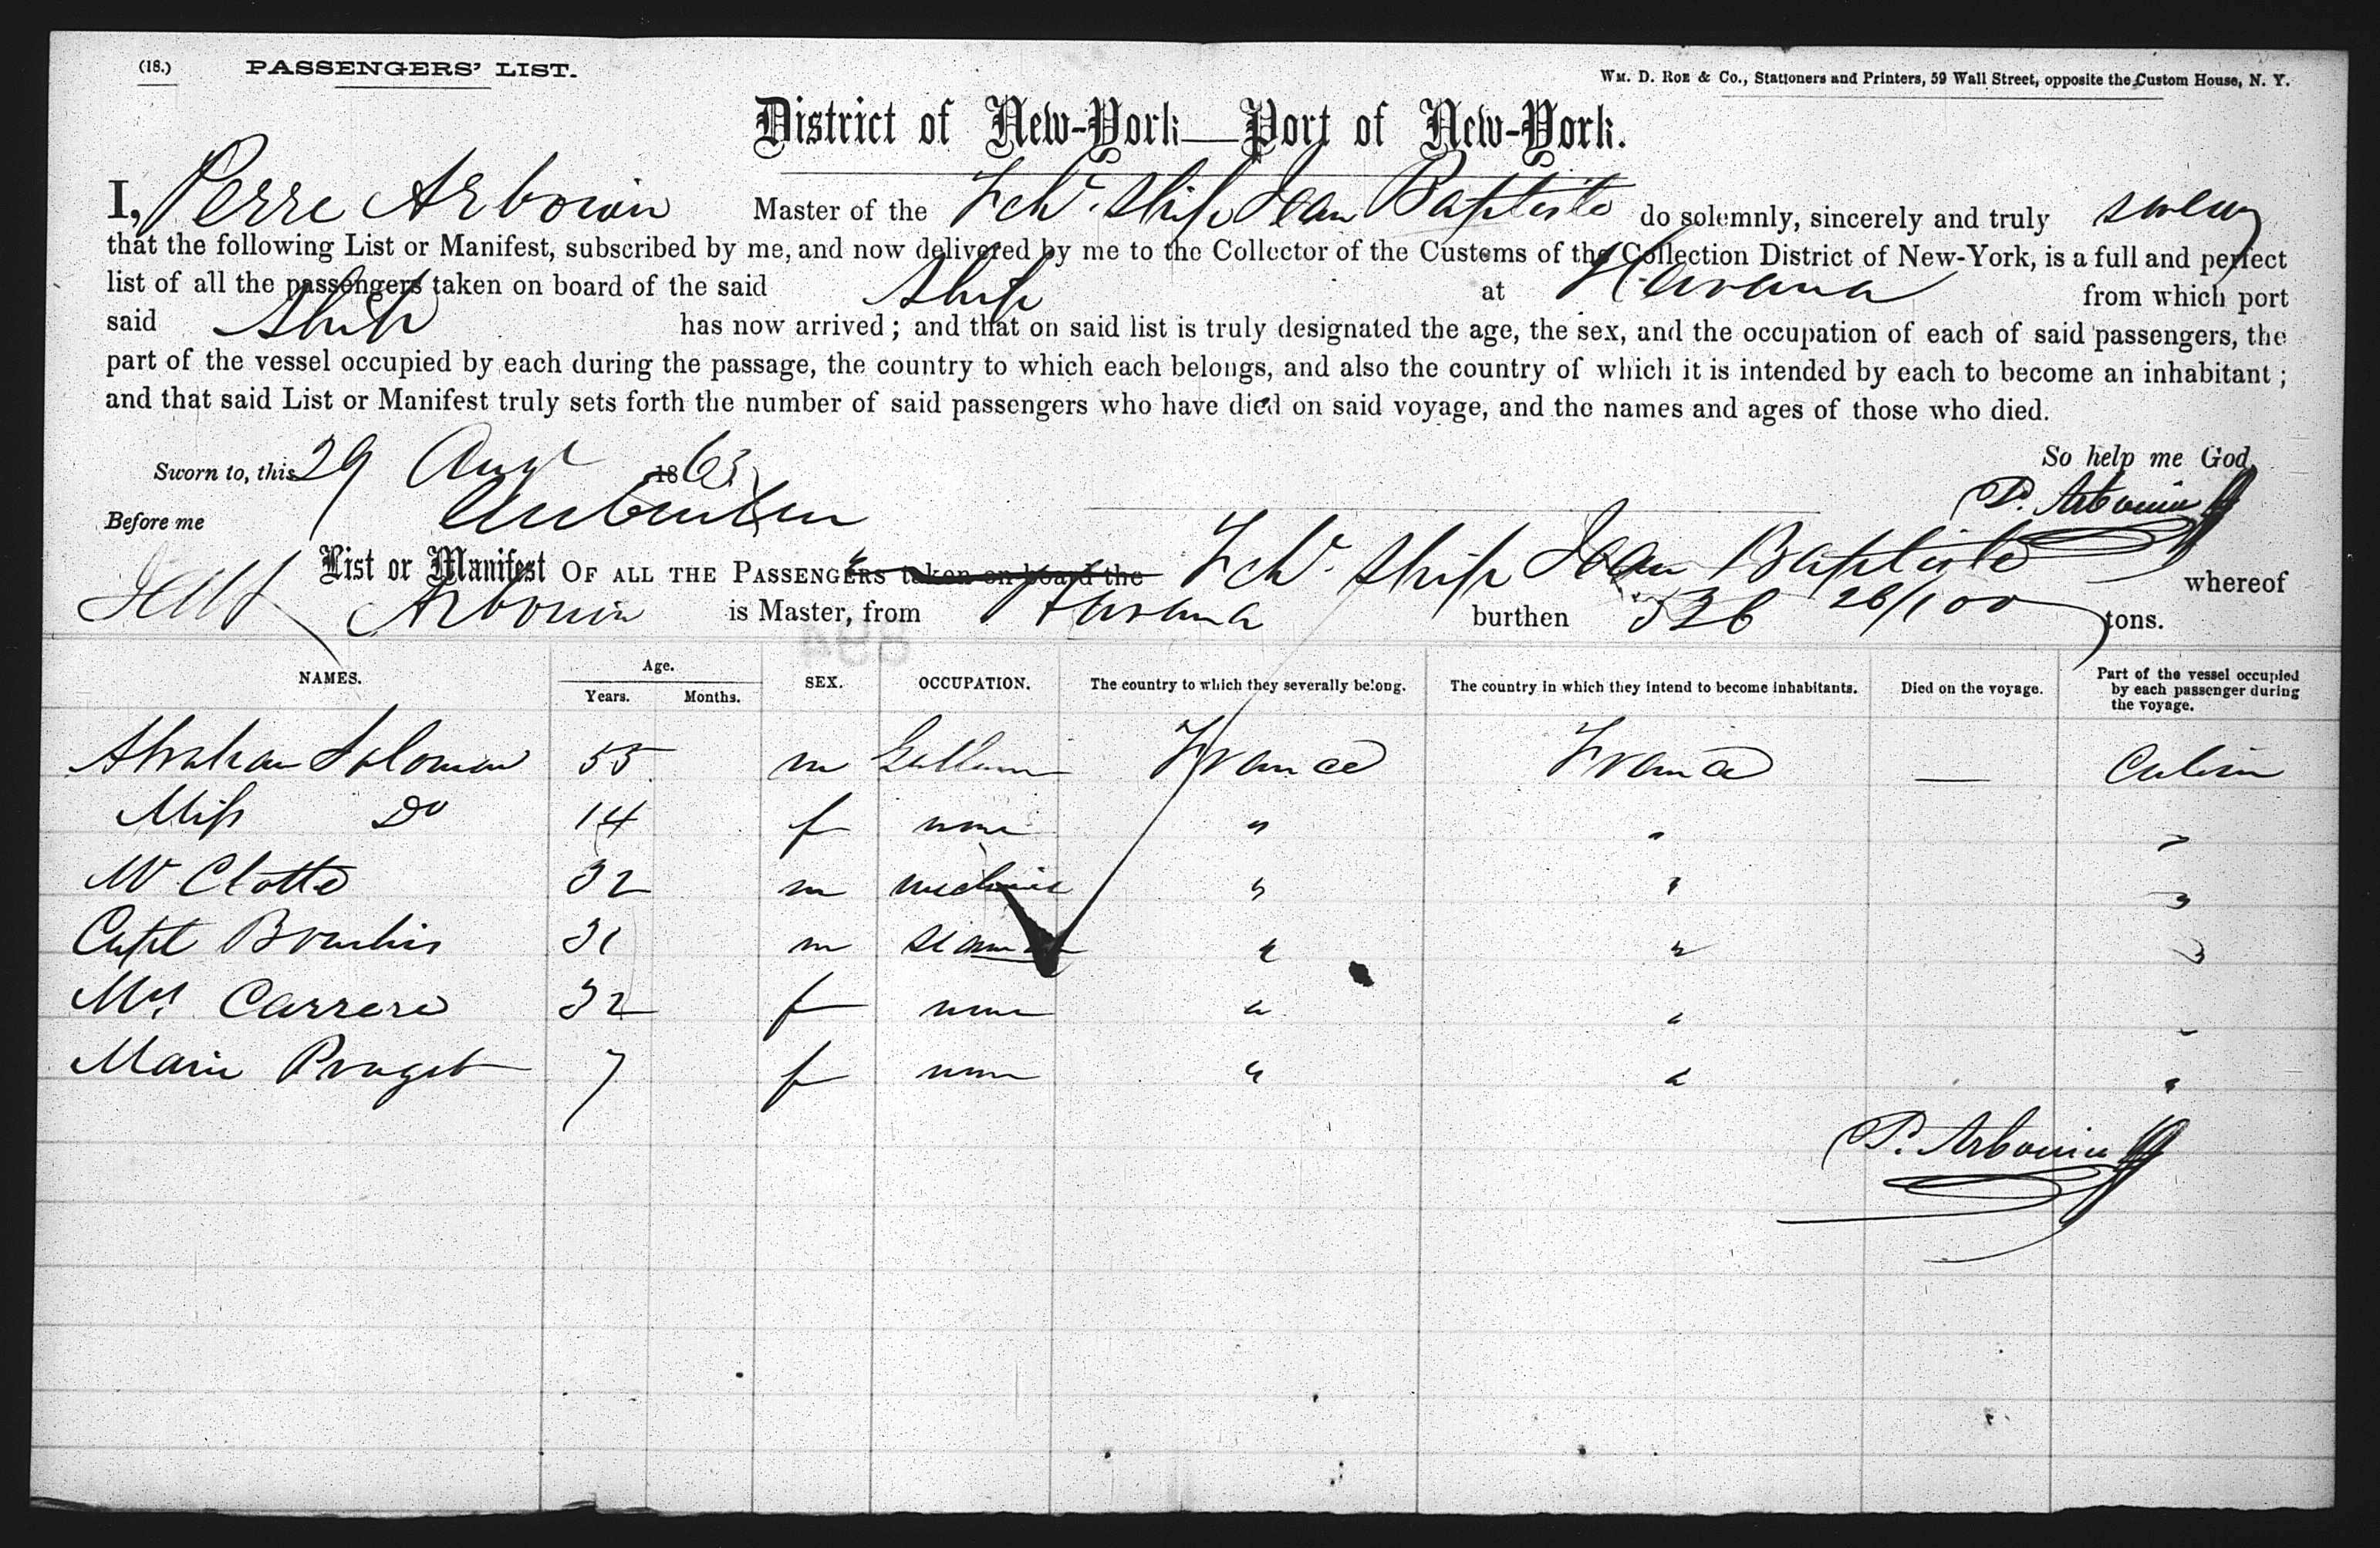 (18.) PASSENGERS' LIST.
WM. D. ROE & Co., Stationers and Printers, 59 Wall Street, opposite the Custom House, N. Y.
District of New-York—Port of New-York.
I, Perre Arbouin Master of the Fch. Ship Jean Baptiste do solemnly, sincerely and truly swear
that the following List or Manifest, subscribed by me, and now delivered by me to the Collector of the Customs of the Collection District of New-York, is a full and perfect
list of all the passengers taken on board of the said Ship at Havana from which port
said Ship has now arrived; and that on said list is truly designated the age, the sex, and the occupation of each of said passengers, the
part of the vessel occupied by each during the passage, the country to which each belongs, and also the country of which it is intended by each to become an inhabitant;
and that said List or Manifest truly sets forth the number of said passengers who have died on said voyage, and the names and ages of those who died.
So help me God,
Sworn to, this 29 Augt 1863
P. Arbouin
Before me
List or Manifest OF ALL THE PASSENGERS taken on board the Fch. Ship Jean Baptiste whereof
Arbouin is Master, from Havana burthen 526 26/100 tons.
NAMES. Age. Years. Months. SEX. OCCUPATION. The country to which they severally belong. The country in which they intend to become inhabitants. Died on the voyage. Part of the vessel occupied by each passenger during the voyage.
Abraham Solomon 55 m France France — Cabin
Miss Do 14 f none " " "
Mr Clotte 32 m mechanic " " "
Capt 31 m seaman " " "
Mrs Carrere 32 f none " " "
Marie Pruget 7 f none " " "
P. Arbouin